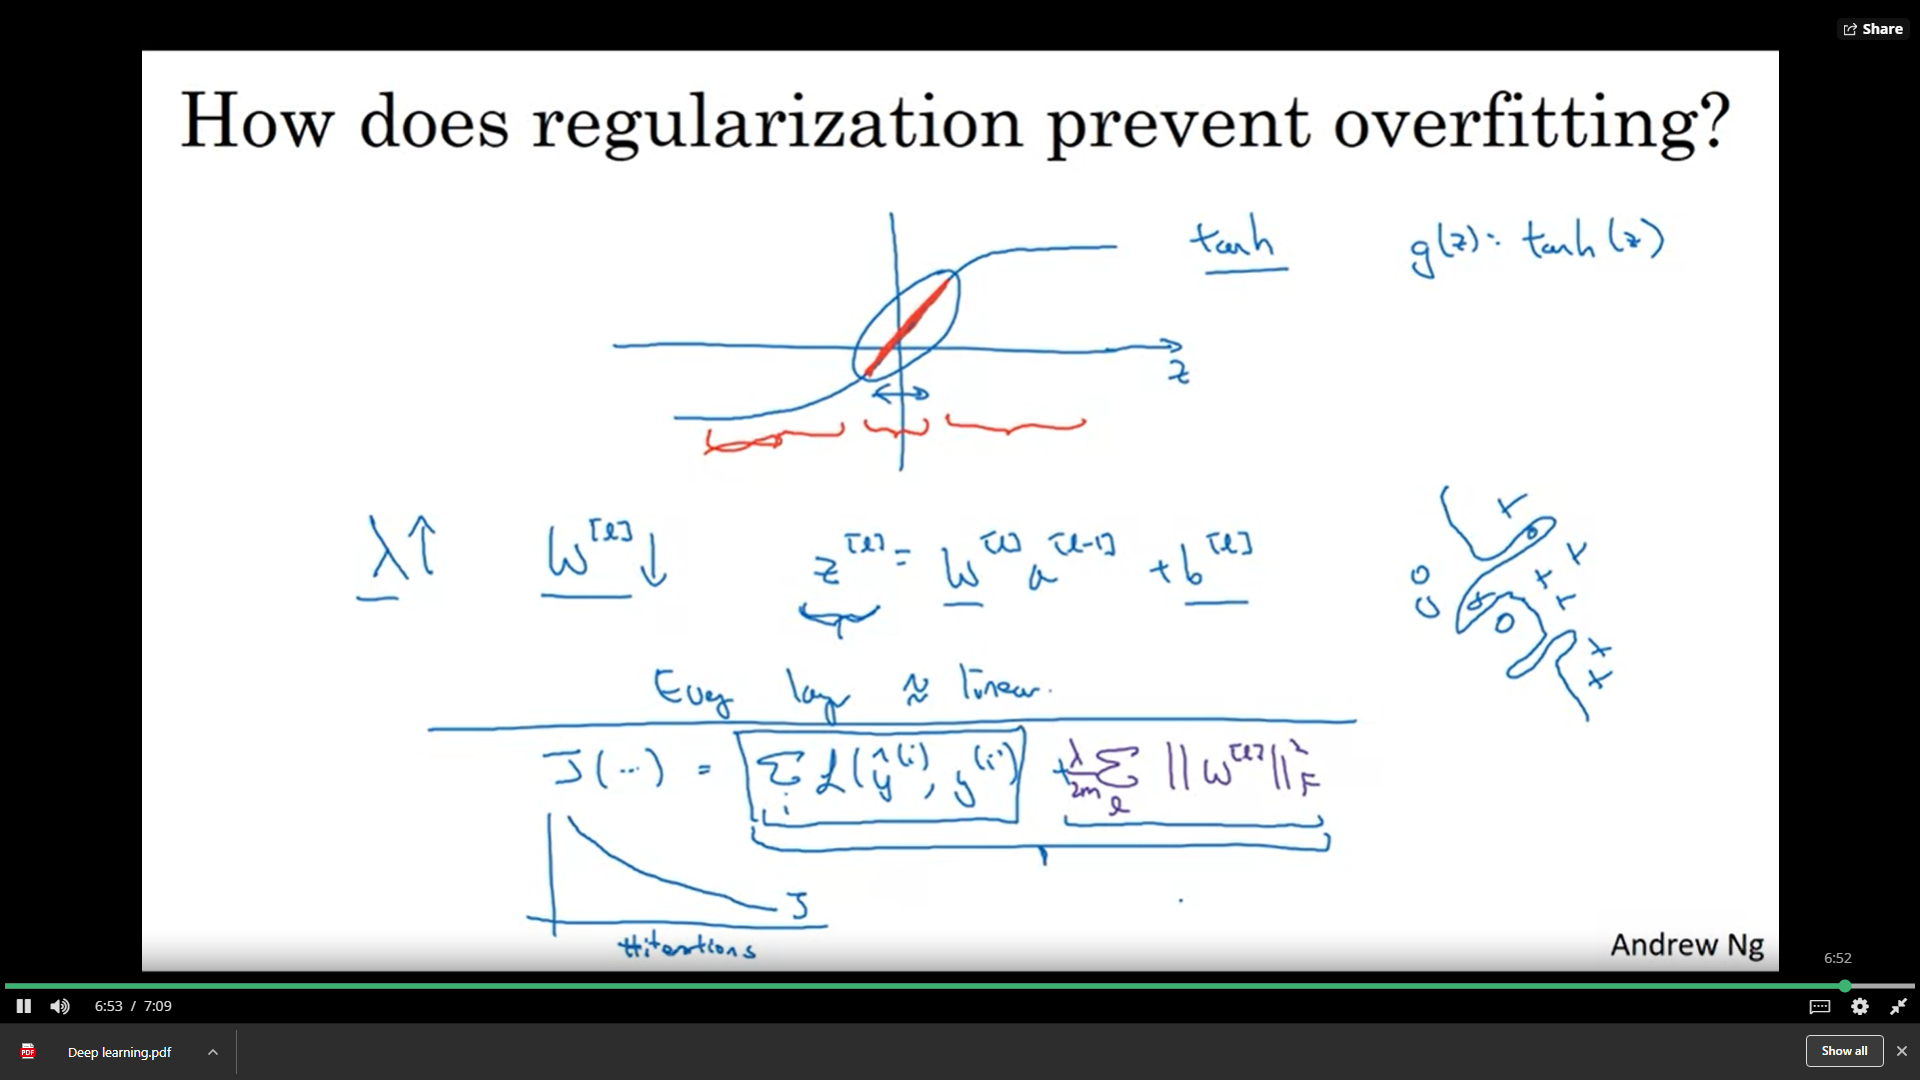 Share
How does regularization prevent overfitting?
tanh
g(z) = tanh(z)
z
λ↑ W^[l]↓ z^[l] = W^[l] a^[l-1] + b^[l]
Every layer ≈ linear.
J(…) = Σ_i L(ŷ^(i), y^(i)) + λ/2m Σ_l ||W^[l]||²_F
J
#iterations
Andrew Ng
6:52
6:53 / 7:09
PDF
Deep learning.pdf
Show all